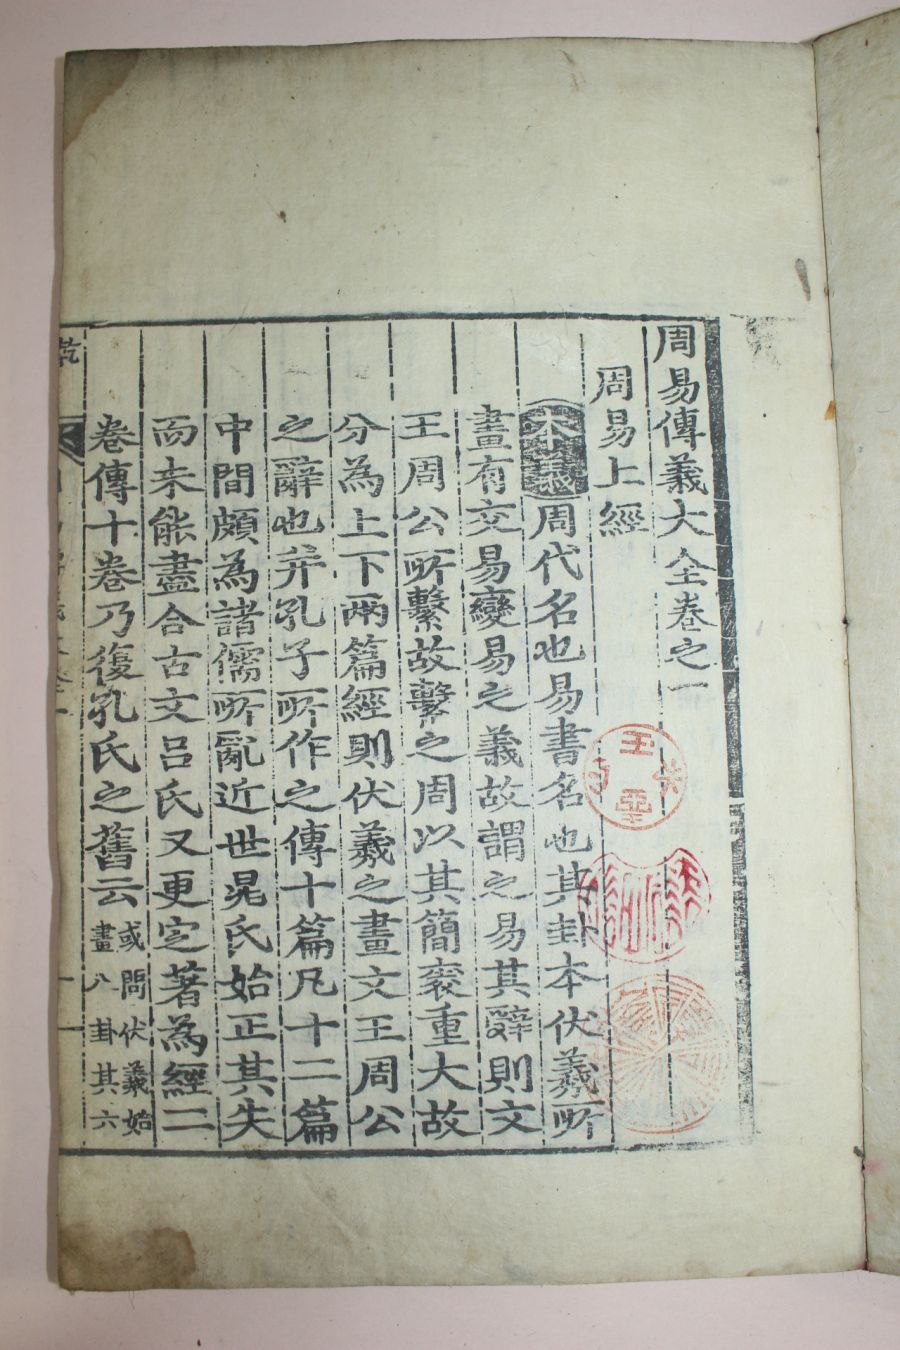 周易傳義大全卷之一
周易上經
本義周代名也易書名也其卦本伏羲所
畫有交易變易之義故謂之易其辭則文
王周公所繫故繫之周以其簡袠重大故
分為上下兩篇經則伏羲之畫文王周公
之辭也并孔子所作之傳十篇凡十二篇
中間頗為諸儒所亂近世晁氏始正其失
而未能盡合古文呂氏又更定著為經二
卷傳十卷乃復孔氏之舊云
或問伏羲始
畫八卦其六
乾